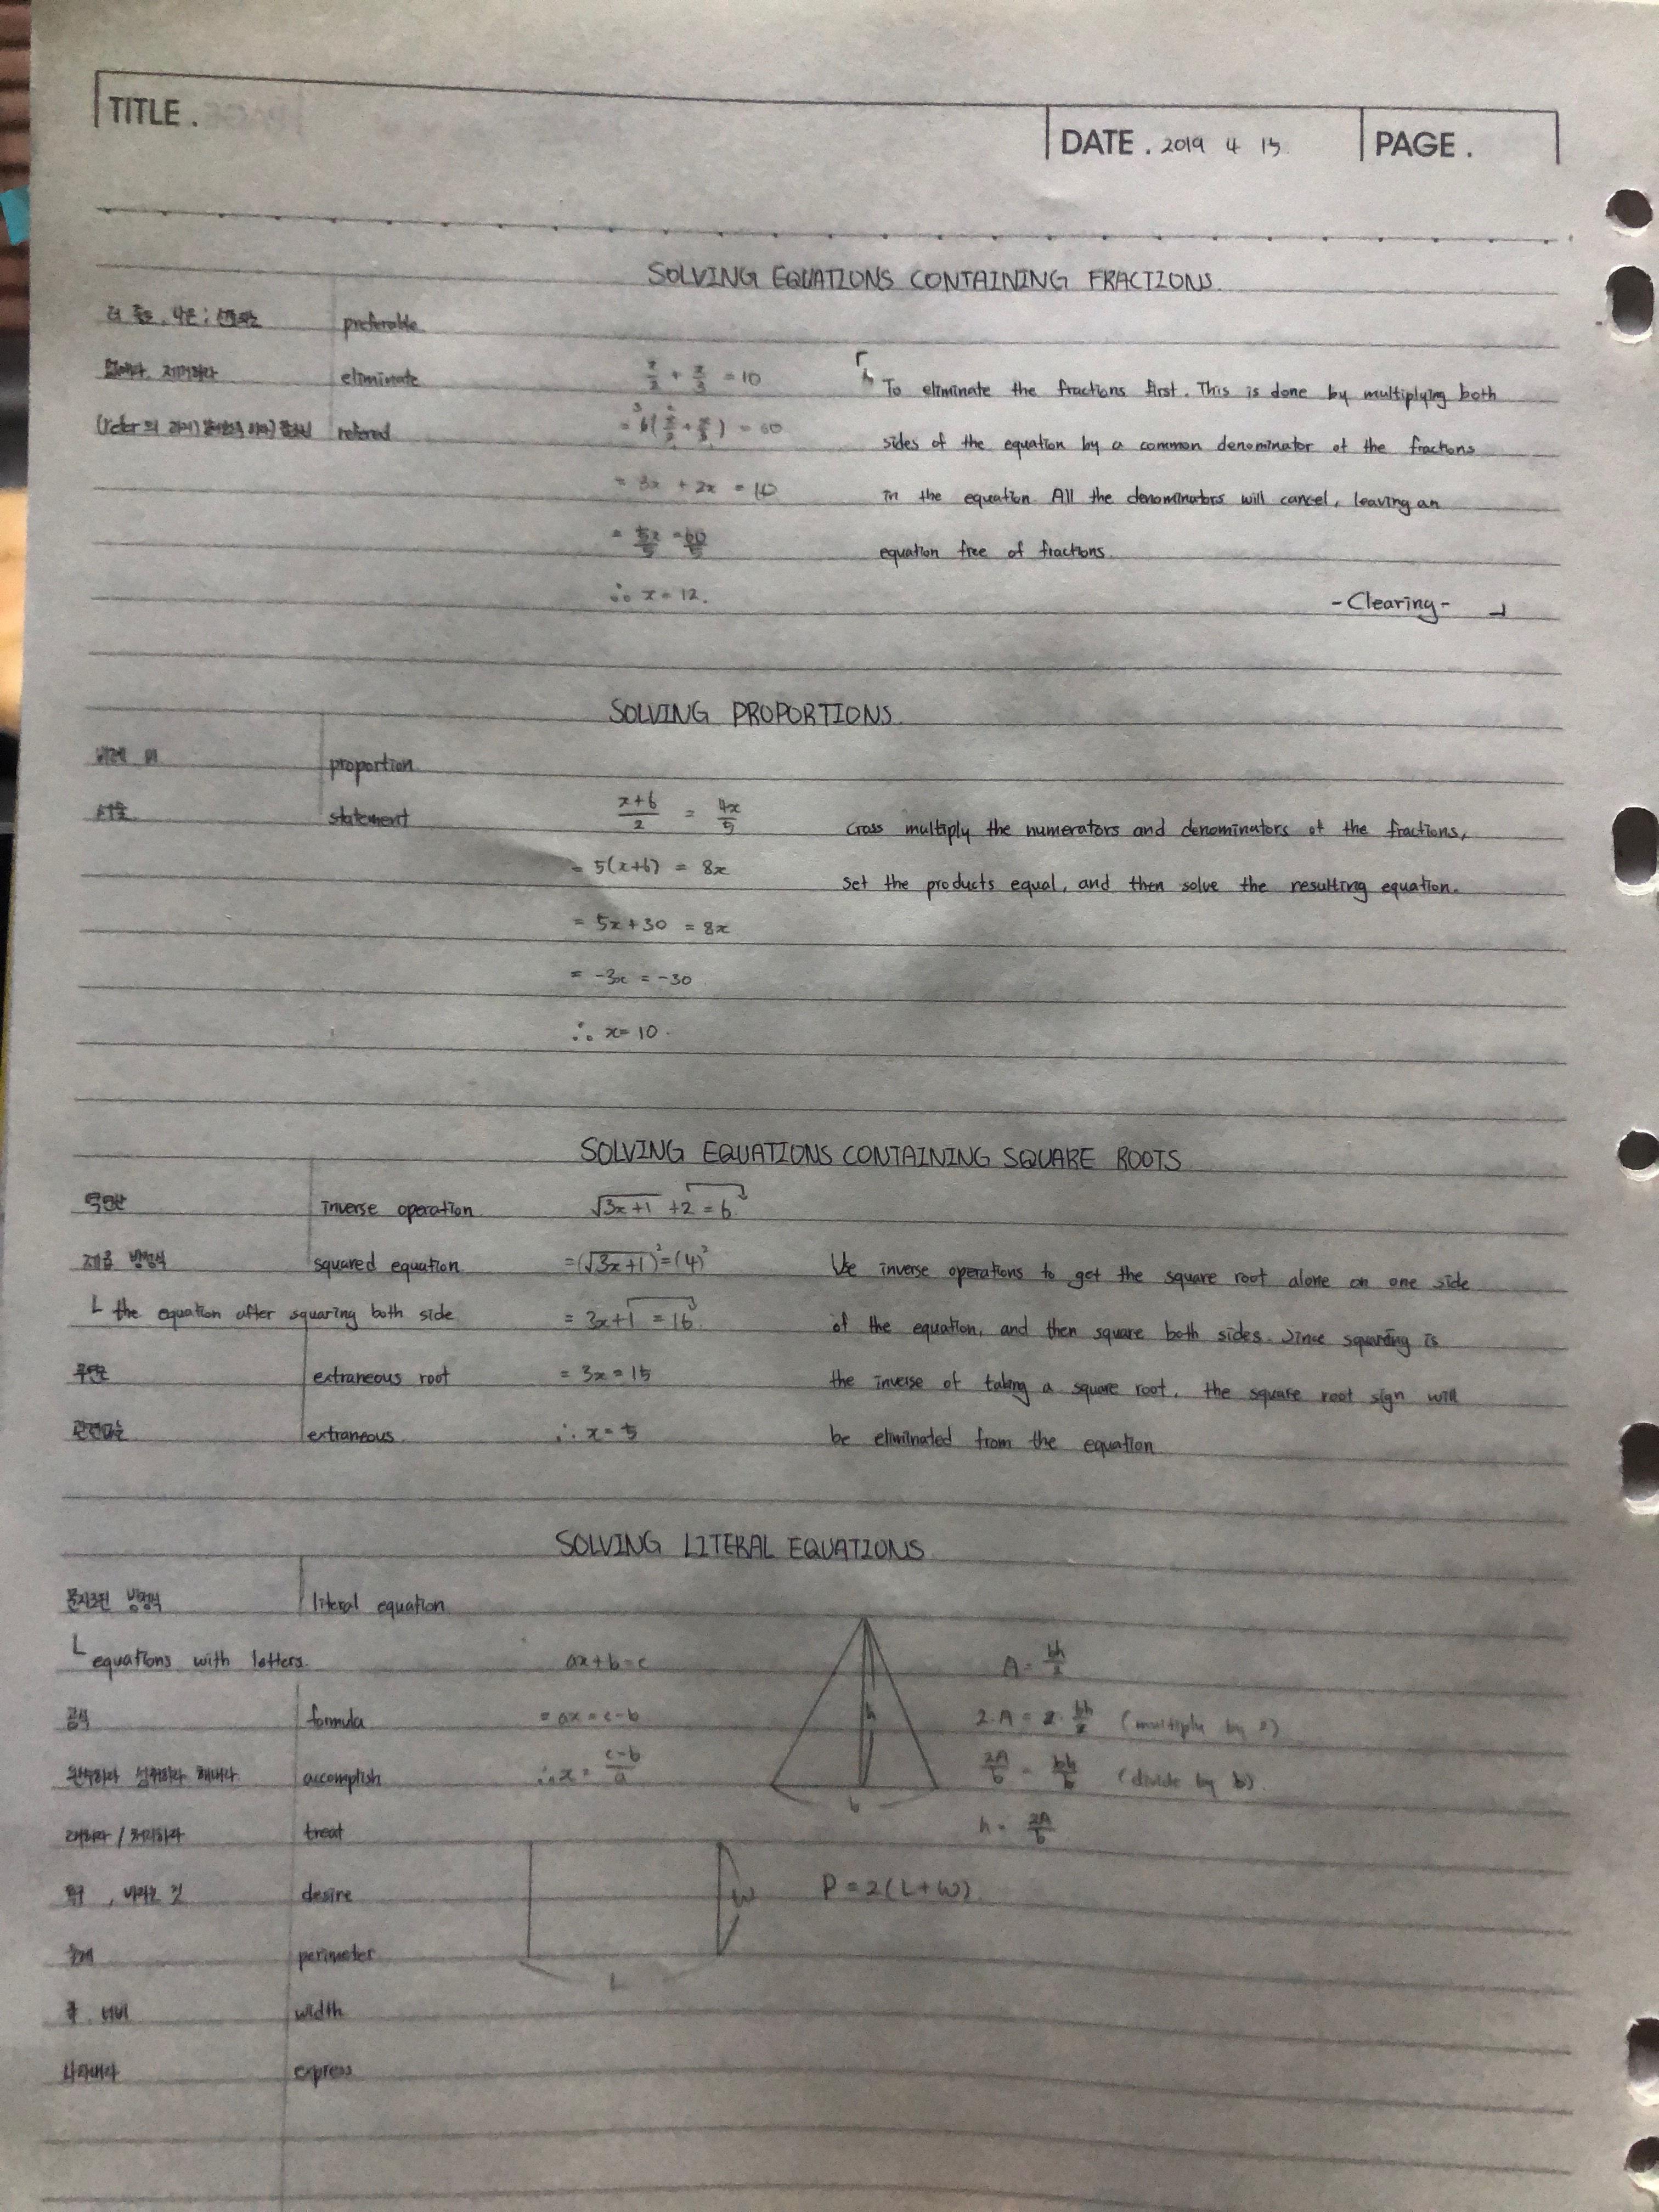 TITLE.
DATE. 2019 4 15 PAGE.
SOLVING EQUATIONS CONTAINING FRACTIONS.
preferable
제거하다 eliminate x/2 + x/3 = 10 「 To eliminate the fractions first. This is done by multiplying both
refered = 6(x/2 + x/3) = 60 sides of the equation by a common denominator of the fractions
= 3x + 2x = in the equation. All the denominators will cancel, leaving an
= 5x/5 = 60/5 equation free of fractions.
∴ x = 12. - Clearing - 」
SOLVING PROPORTIONS.
비례 proportion
statement (x+6)/2 = 4x/5 Cross multiply the numerators and denominators of the fractions,
= 5(x+6) = 8x set the products equal, and then solve the resulting equation.
= 5x+30 = 8x
= -3x = -30
∴ x = 10.
SOLVING EQUATIONS CONTAINING SQUARE ROOTS
역연산 inverse operation √(3x+1) + 2 = 6
제곱 방정식 squared equation = (√(3x+1))² = (4)² Use inverse operations to get the square root alone on one side
ㄴ the equation after squaring both side = 3x+1 = 16 of the equation, and then square both sides. Since squaring is
무연근 extraneous root = 3x = 15 the inverse of taking a square root, the square root sign will
extraneous ∴ x = 5 be eliminated from the equation
SOLVING LITERAL EQUATIONS
방정식 literal equation
ㄴ equations with letters. ax+b=c A = bh/2
공식 formula = ax = c-b h 2·A = 2·bh/2 (multiply by 2)
완수하다 성취하다 해내다 accomplish ∴ x = (c-b)/a 2A/b = bh/b (divide by b).
대하다 / 처리하다 treat b h = 2A/b
바라는 것 desire w P = 2(L+W)
둘레 perimeter
L
폭, 너비 width
나타내다 express